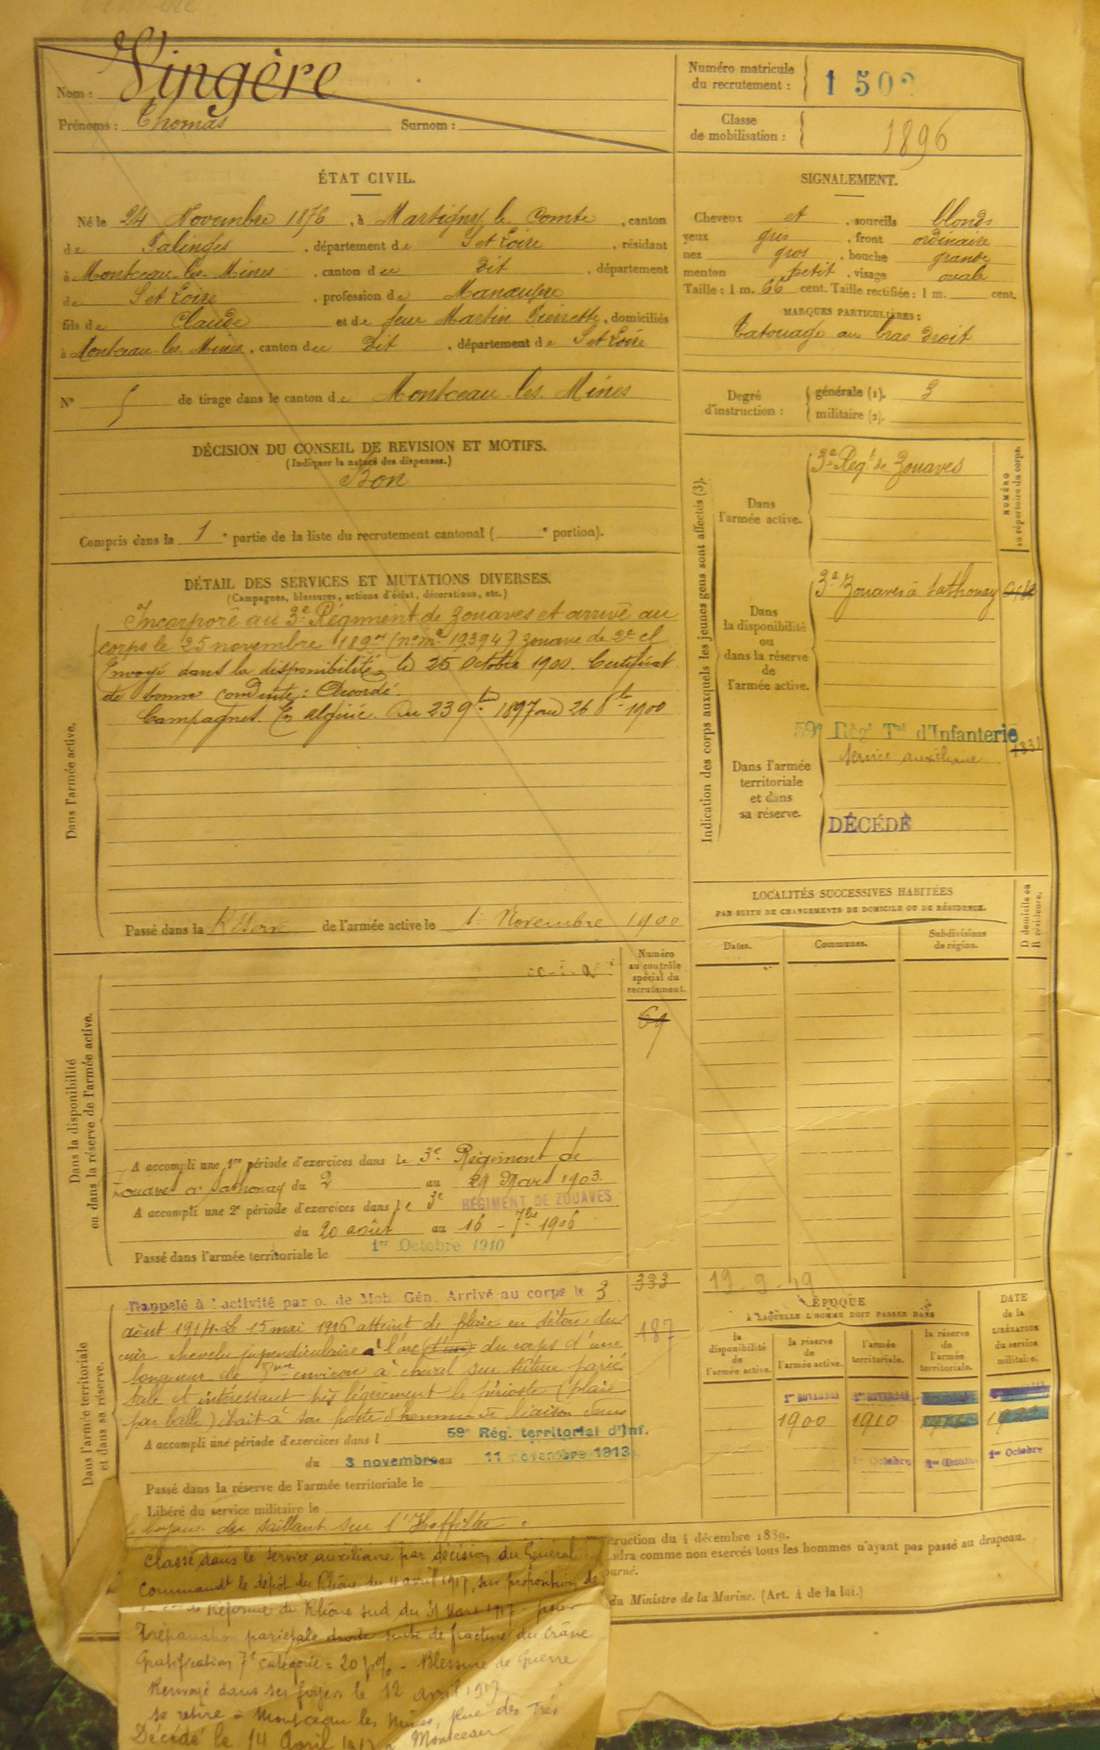 Nom : Vingère
Prénoms : Thomas Surnom :
Numéro matricule du recrutement : 1 502
Classe de mobilisation : 1896
ÉTAT CIVIL.
Né le 24 Novembre 1876, à Martigny le Comte, canton
de Palinges, département de S et Loire, résidant
à Montceau les Mines, canton du dit, département
de S et Loire, profession de Manœuvre
fils de Claude et de feue Martin Pierrette, domiciliés
à Montceau les Mines, canton du dit, département de S et Loire
N° 5 de tirage dans le canton de Montceau les Mines
SIGNALEMENT.
Cheveux et, sourcils blonds
yeux gris, front ordinaire
nez gros, bouche grande
menton petit, visage ovale
Taille : 1 m. 66 cent. Taille rectifiée : 1 m. cent.
MARQUES PARTICULIÈRES :
Tatouage au bras droit
Degré d'instruction : générale (1). 3
militaire (2).
DÉCISION DU CONSEIL DE REVISION ET MOTIFS.
(Indiquer la nature des dispenses.)
Bon
Compris dans la 1e partie de la liste du recrutement cantonal ( e portion).
DÉTAIL DES SERVICES ET MUTATIONS DIVERSES.
(Campagnes, blessures, actions d'éclat, décorations, etc.)
Dans l'armée active.
Incorporé au 3e Régiment de Zouaves et arrivé au
corps le 25 novembre 1897 (no mle 19394) zouave de 2e cl
Envoyé dans la disponibilité le 25 Octobre 1900. Certificat
de bonne conduite : Accordé.
Campagnes. En Algérie du 23 9bre 1897 au 26 8bre 1900
Passé dans la Réserve de l'armée active le 1er Novembre 1900
Indication des corps auxquels les jeunes gens sont affectés (3).
NUMÉRO au répertoire du corps.
Dans l'armée active.
3e Régt de Zouaves
Dans la disponibilité ou dans la réserve de l'armée active.
3e Zouaves à Sathonay
Dans l'armée territoriale et dans sa réserve.
59e Rég. Tal d'Infanterie
Service auxiliaire
DÉCÉDÉ
LOCALITÉS SUCCESSIVES HABITÉES
PAR SUITE DE CHANGEMENTS DE DOMICILE OU DE RÉSIDENCE.
Dates. Communes. Subdivisions de région. D domicile ou R résidence.
Dans la disponibilité ou dans la réserve de l'armée active.
Numéro au contrôle spécial du recrutement.
69
A accompli une 1re période d'exercices dans le 3e Régiment de
Zouaves à Sathonay du 2 au 29 Mars 1903.
A accompli une 2e période d'exercices dans le 3e RÉGIMENT DE ZOUAVES
du 20 août au 16 - 7bre 1906
Passé dans l'armée territoriale le 1er Octobre 1910
Dans l'armée territoriale et dans sa réserve.
333
187
Rappelé à l'activité par o. de Mob. Gén. Arrivé au corps le 3
août 1914. Le 15 mai 1916 atteint de plaie en séton du
cuir chevelu perpendiculaire à l'axe du corps d'une
longueur de environ à cheval sur suture parié
tale et intéressant très légèrement le périoste (plaie
par balle) était à son poste d'homme de liaison dans
A accompli une période d'exercices dans l 59e Rég. territorial d'Inf.
du 3 novembre au 11 novembre 1913
Passé dans la réserve de l'armée territoriale le
Libéré du service militaire le
le boyau du saillant sur l'
Classé dans le service auxiliaire par décision du Général
Commandt le dépôt du Rhône du 11 avril 1917, sur proposition de
Réforme du Rhône sud du 31 Mars 1917 - pour
Trépanation pariétale droite suite de fracture du crâne
Gratification 7e catégorie = 20 p% - Blessure de guerre
Renvoyé dans ses foyers le 12 avril 1917
se retire à Montceau les Mines, rue des
Décédé le 14 Avril à Montceau
19-9-19
ÉPOQUE
À LAQUELLE L'HOMME DOIT PASSER DANS
la disponibilité de l'armée active. la réserve de l'armée active. l'armée territoriale. la réserve de l'armée territoriale.
DATE de la LIBÉRATION du service militaire.
1er NOVEMBRE 1er NOVEMBRE
1900 1910
1er Octobre 1er Octobre 1er Octobre
instruction du 4 décembre 1889.
comme non exercés tous les hommes n'ayant pas passé au drapeau.
du Ministre de la Marine. (Art. 4 de la loi.)